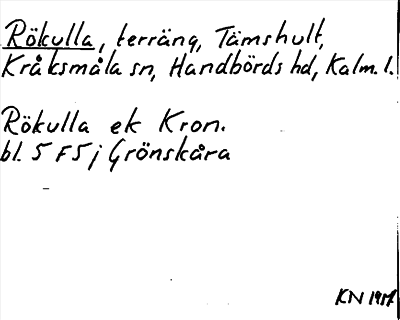 Rökulla, terräng, Tämshult,
Kråksmåla sn, Handbörds hd, Kalm. l.
Rökulla ek Kron.
bl. 5 F 5 j Grönskåra
KN